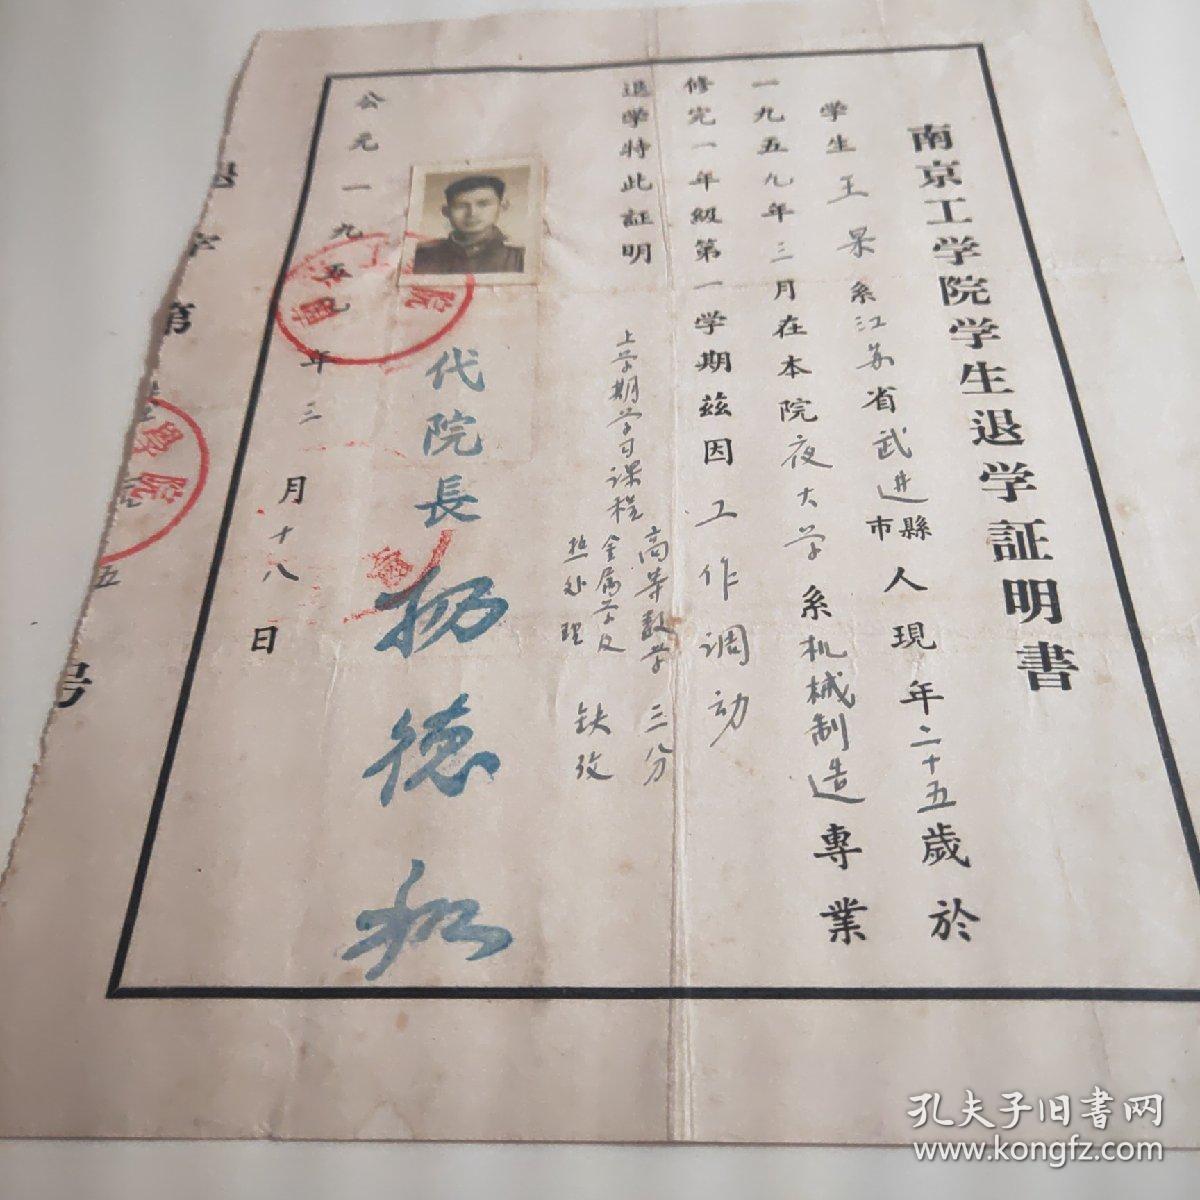 南京工学院学生退学証明書
学生王杲系江苏省武进縣市人現年二十五歲於
一九五九年三月在本院夜大学系机械制造專業
修完一年級第一学期茲因工作调动
退学特此証明
上学期学习课程 高等数学 三分
金属学及
热处理 缺考
代院長 楊德和
公元一九五九年三月十八日
字第
五
号
孔夫子旧書网
www.kongfz.com